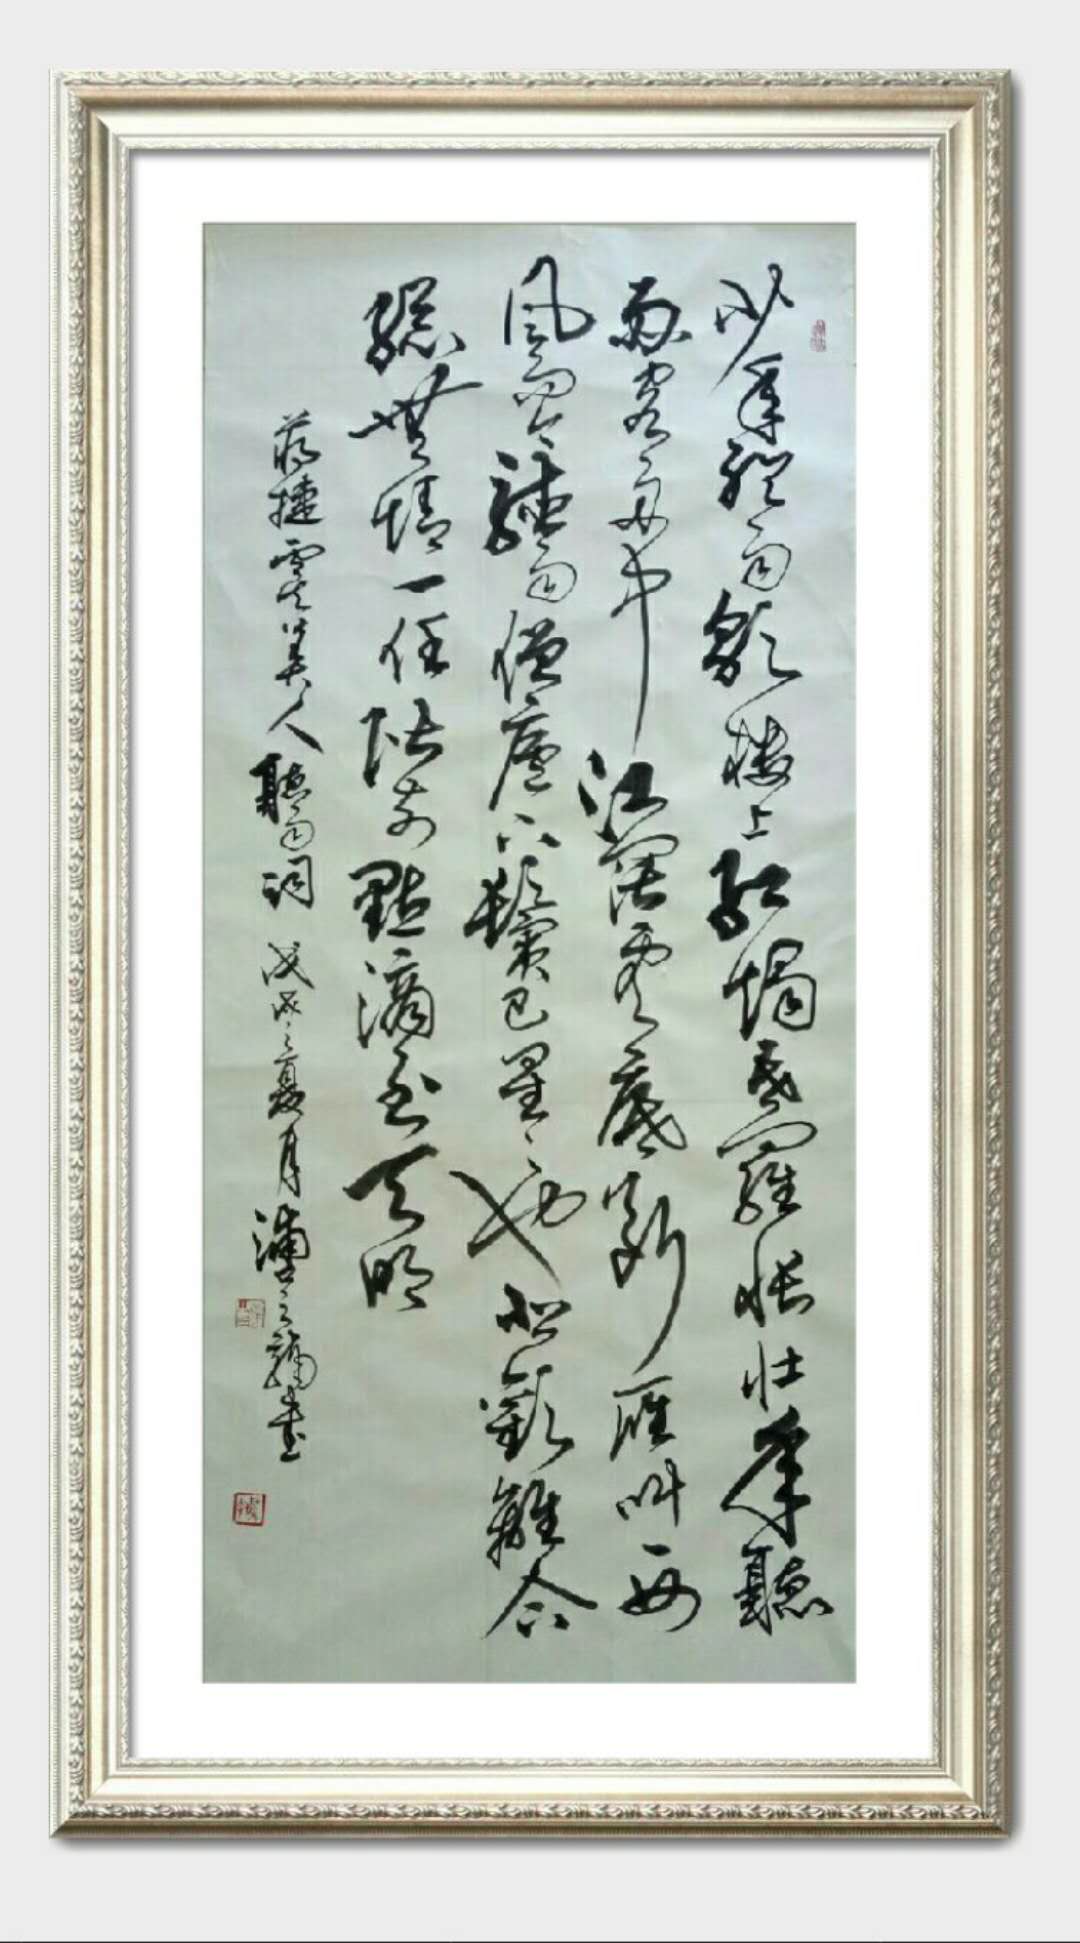 少年聽雨歌樓上紅燭昏羅帳壯年聽
雨客舟中江闊雲底斷雁叫西
風而今聽雨僧廬下鬢已星星也悲歡離合
總無情一任階前點滴到天明
蔣捷虞美人聽雨詞 戊戌之夏月 之 書